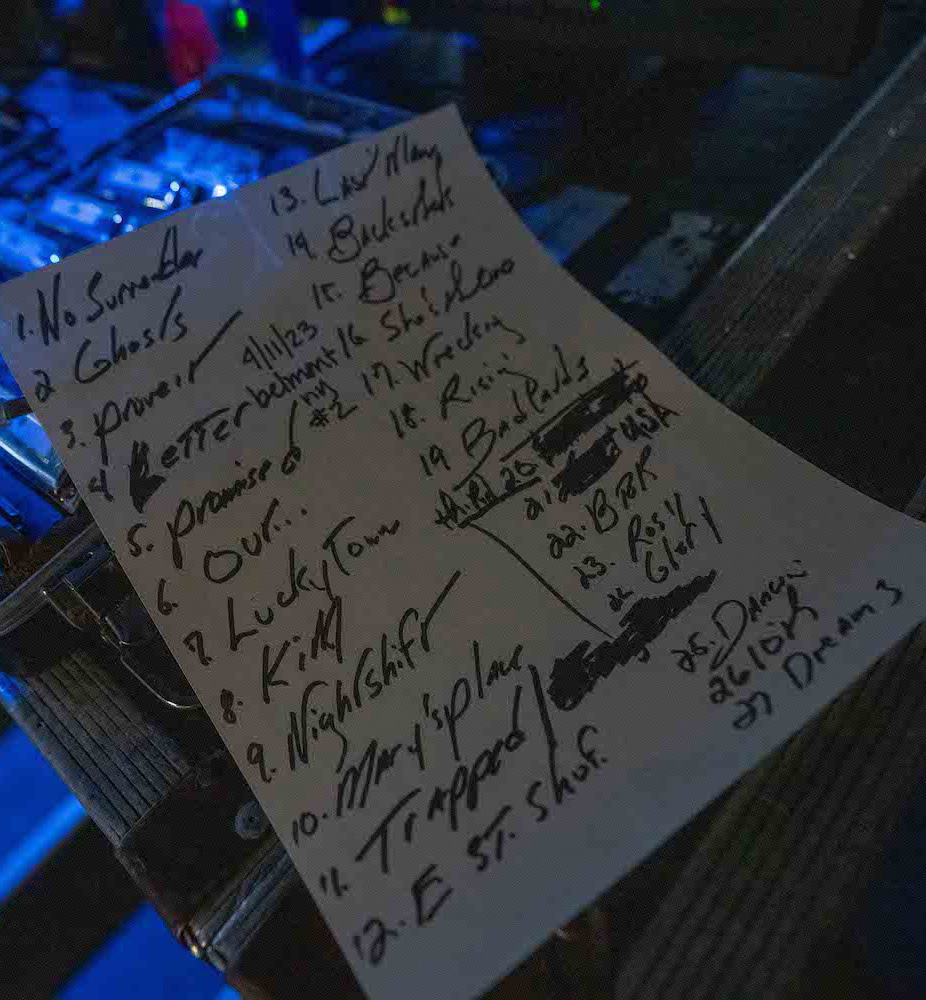 1. No Surrender
2 Ghosts
3. Prove it
4 Letter
5. Promised
6. Our...
7. Lucky Town
8. Kitty
9. Nightshift
10. Mary's place
11. Trapped
12. E ST. Shuf.
4/11/23
belmont
ny
#2
13. Last Man
14 Backstreets
15. Because
16 She's the one
17. Wrecking
18. Rising
19 Badlands
th. Rd 20
21. USA
22. BTR
23. Rosy
24 Glory
25. Dancin
26 10th
27 Dreams